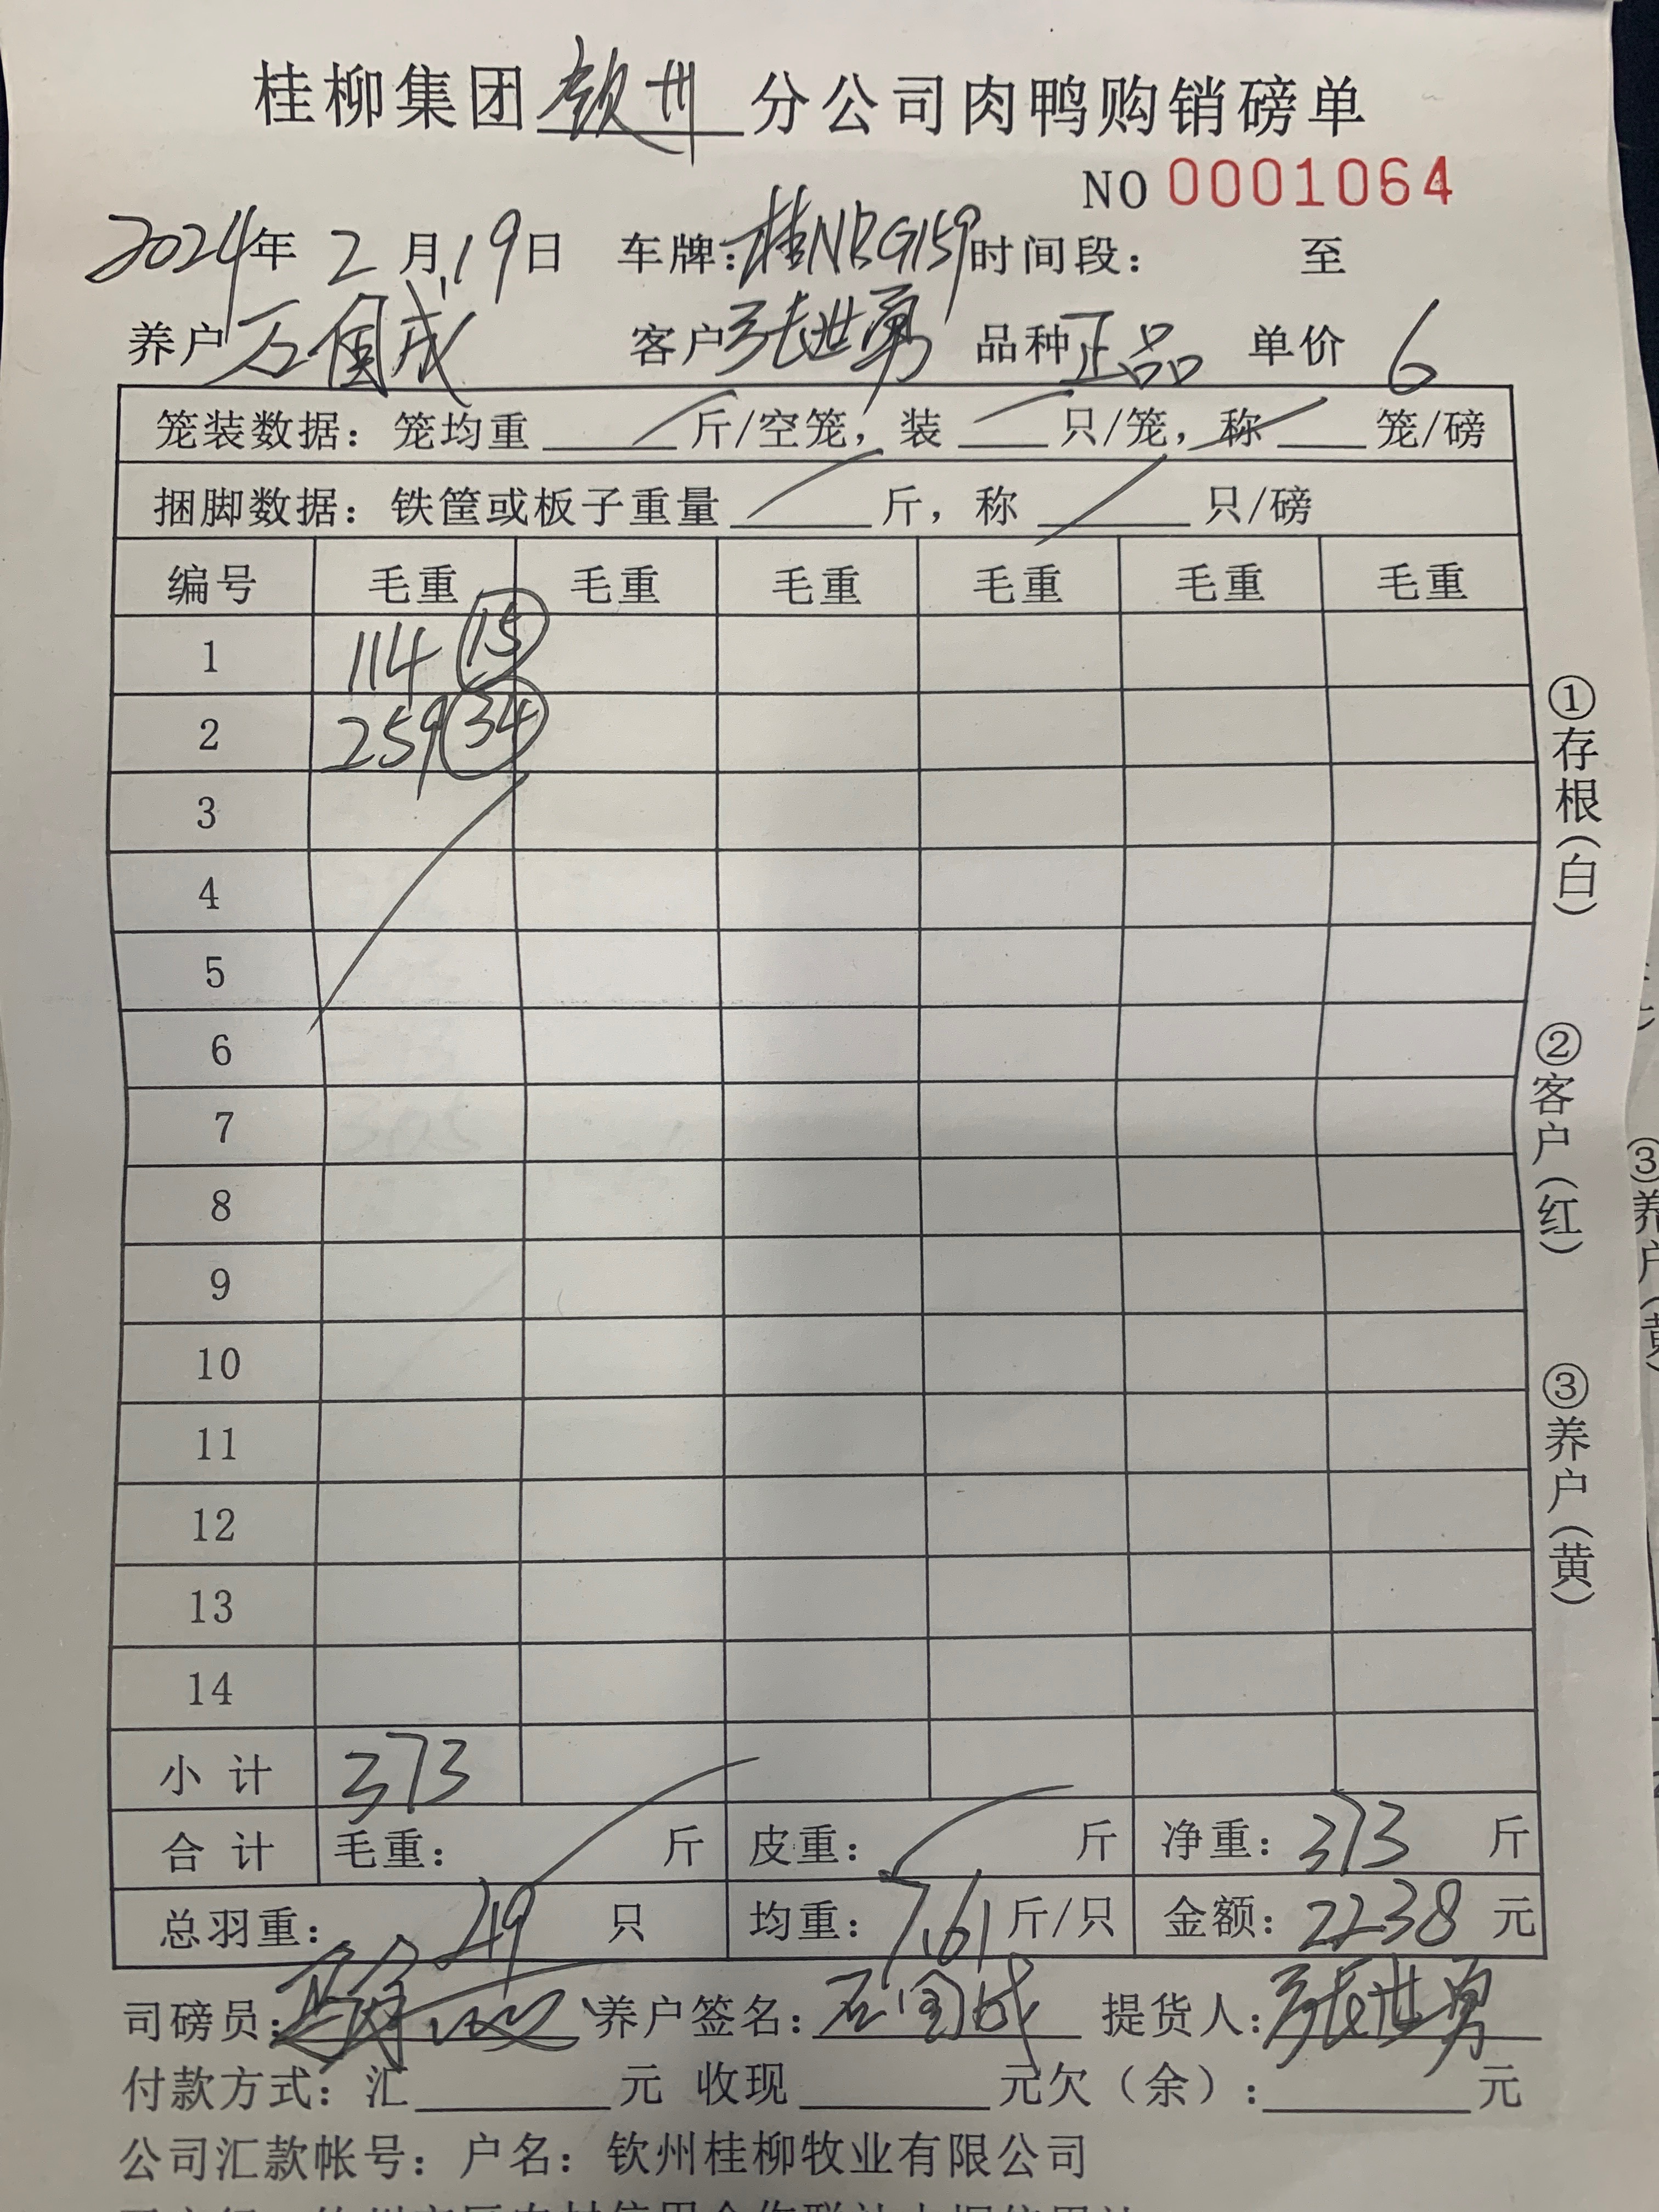 桂柳集团钦州分公司肉鸭购销磅单
NO 0001064
2024年 2月19日 车牌：桂NRG159时间段： 至
养户 石国成 客户 张世勇 品种 正品 单价 6
笼装数据：笼均重____斤/空笼，装____只/笼，称____笼/磅
捆脚数据：铁筐或板子重量____斤，称____只/磅
编号 毛重 毛重 毛重 毛重 毛重 毛重
1 114 15
2 259 34
3
4
5
6
7
8
9
10
11
12
13
14
小计 373
合计 毛重： 斤 皮重： 斤 净重：373 斤
总羽重：49 只 均重：7.61斤/只 金额：2238元
司磅员： 养户签名：石国成 提货人：张世勇
付款方式：汇____元 收现____元欠（余）：____元
公司汇款帐号：户名：钦州桂柳牧业有限公司
①存根（白）
②客户（红）
③养户（黄）
③养户（黄